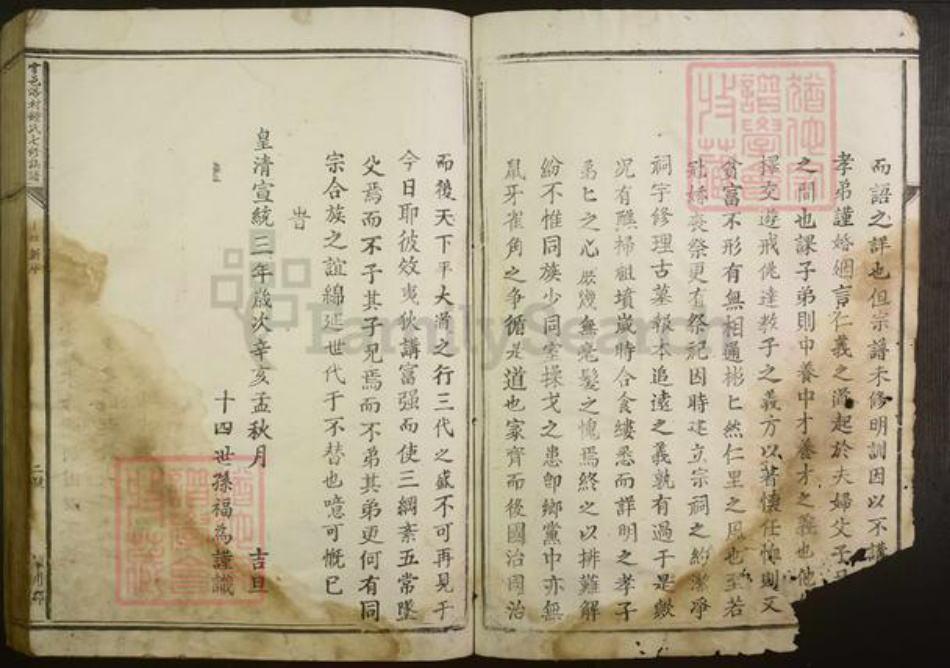 而語之詳也但宗譜未修明訓因以不講
孝弟謹婚姻言仁義之道起於夫婦父子
之間也課子弟則中養中才養才之義也他
擇交遊戒佻達教子之義方以著懷任恤則又
貧富不形有無相通彬匕然仁里之風也至若
冠婚喪祭更有祭祀因時建立宗祠之約潔凈
祠宇修理古墓報本追遠之義孰有過于是歟
况有醮掃祖墳歲時合食縷悉而詳明之孝子
弟匕之心庶幾無毫髮之愧焉終之以排難解
紛不惟同族少同室操戈之患卽鄉黨中亦無
鼠牙雀角之争循是道也家齊而後國治國治
而後天下平大道之行三代之盛不可再見于
今日耶彼效夷狄講富强而使三綱紊五常墜
父焉而不子其子兄焉而不弟其弟更何有同
宗合族之誼綿延世代于不替也噫可慨已
旹
皇清宣統三年歲次辛亥孟秋月 吉旦
十四世孫福為謹識
氏七修族譜
新序
二號
FamilySearch